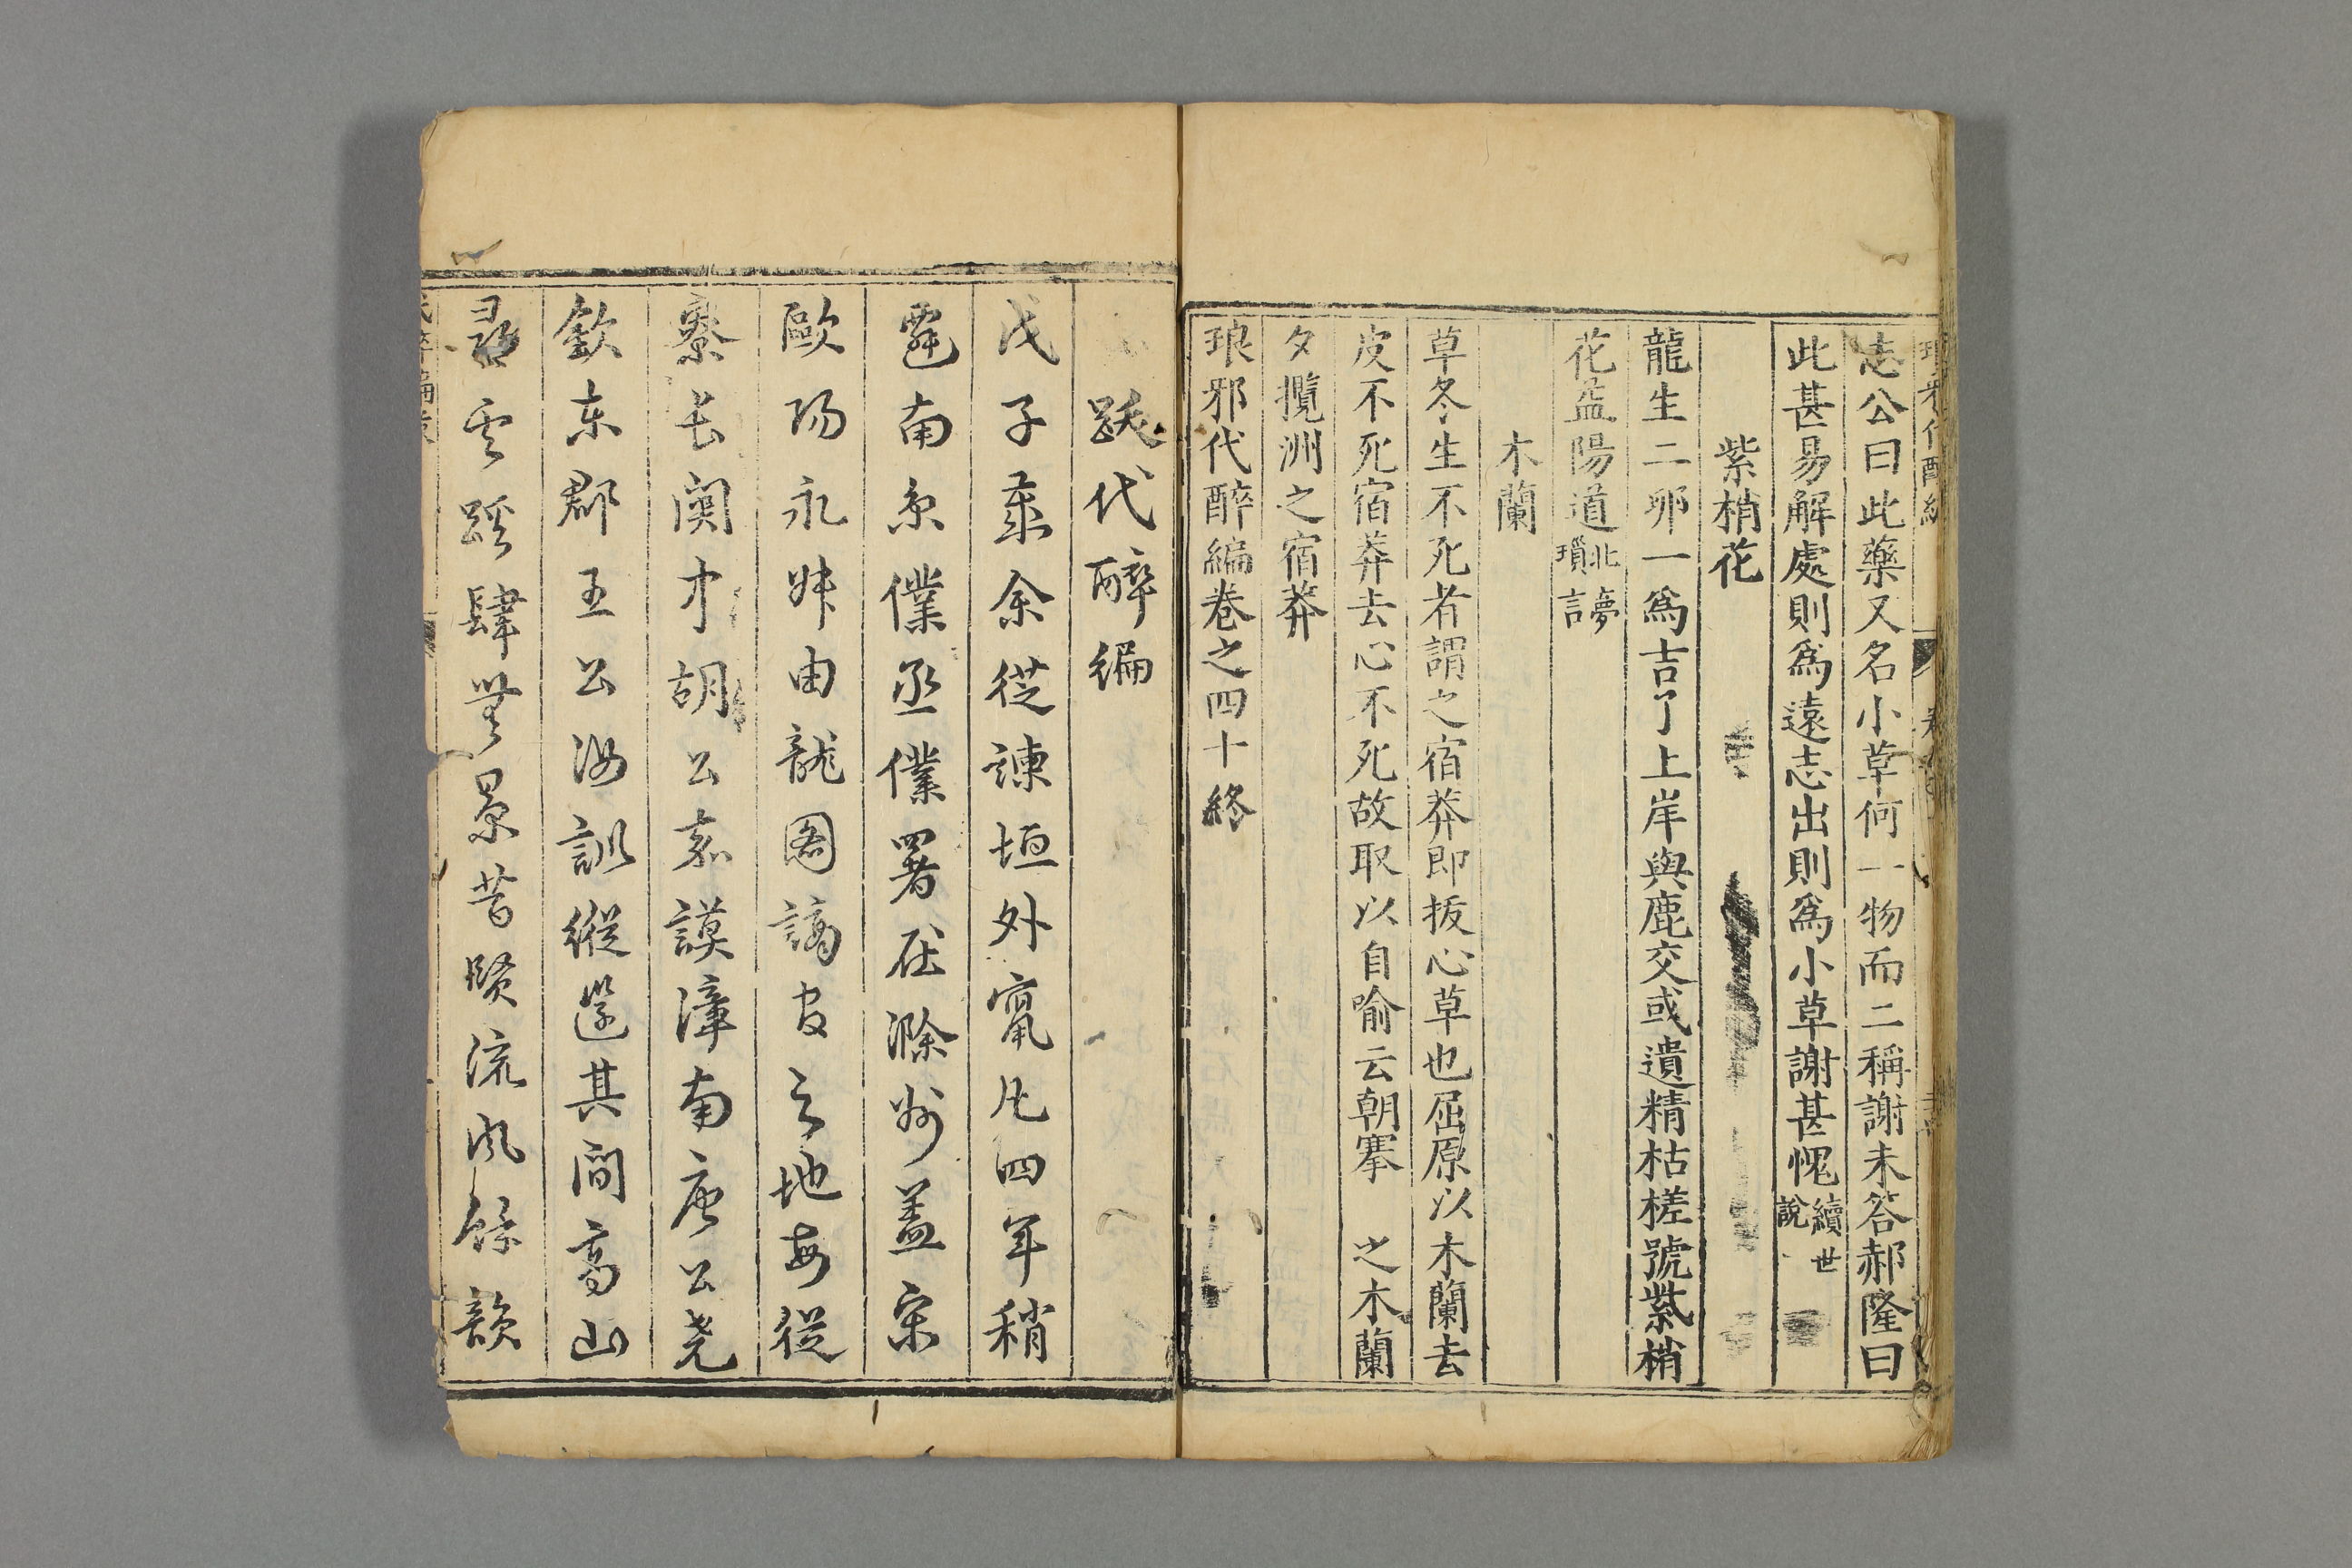 志公曰此藥又名小草何一物而二稱謝未答郝隆曰
此甚易解處則為遠志出則為小草謝甚愧續世說
紫梢花
龍生二卵一為吉了上岸與鹿交或遺精枯槎號紫梢
花孟陽道北夢瑣言
木蘭
草冬生不死者謂之宿莽即拔心草也屈原以木蘭去
皮不死宿莽去心不死故取以自喻云朝搴 之木蘭
夕攬洲之宿莽
琅邪代醉編卷之四十終
跋代醉編
戊子歲余從諫垣外竄凡四年稍
遷南京僕丞僕署在滁州蓋宋
歐陽永叔由龍圖謫官之地每從
寮長闽中胡公 謨漳南唐公堯
欽東郡王公汝訓縱遊其間高山
尋雲蹊肆覽景昔賢流風餘韻